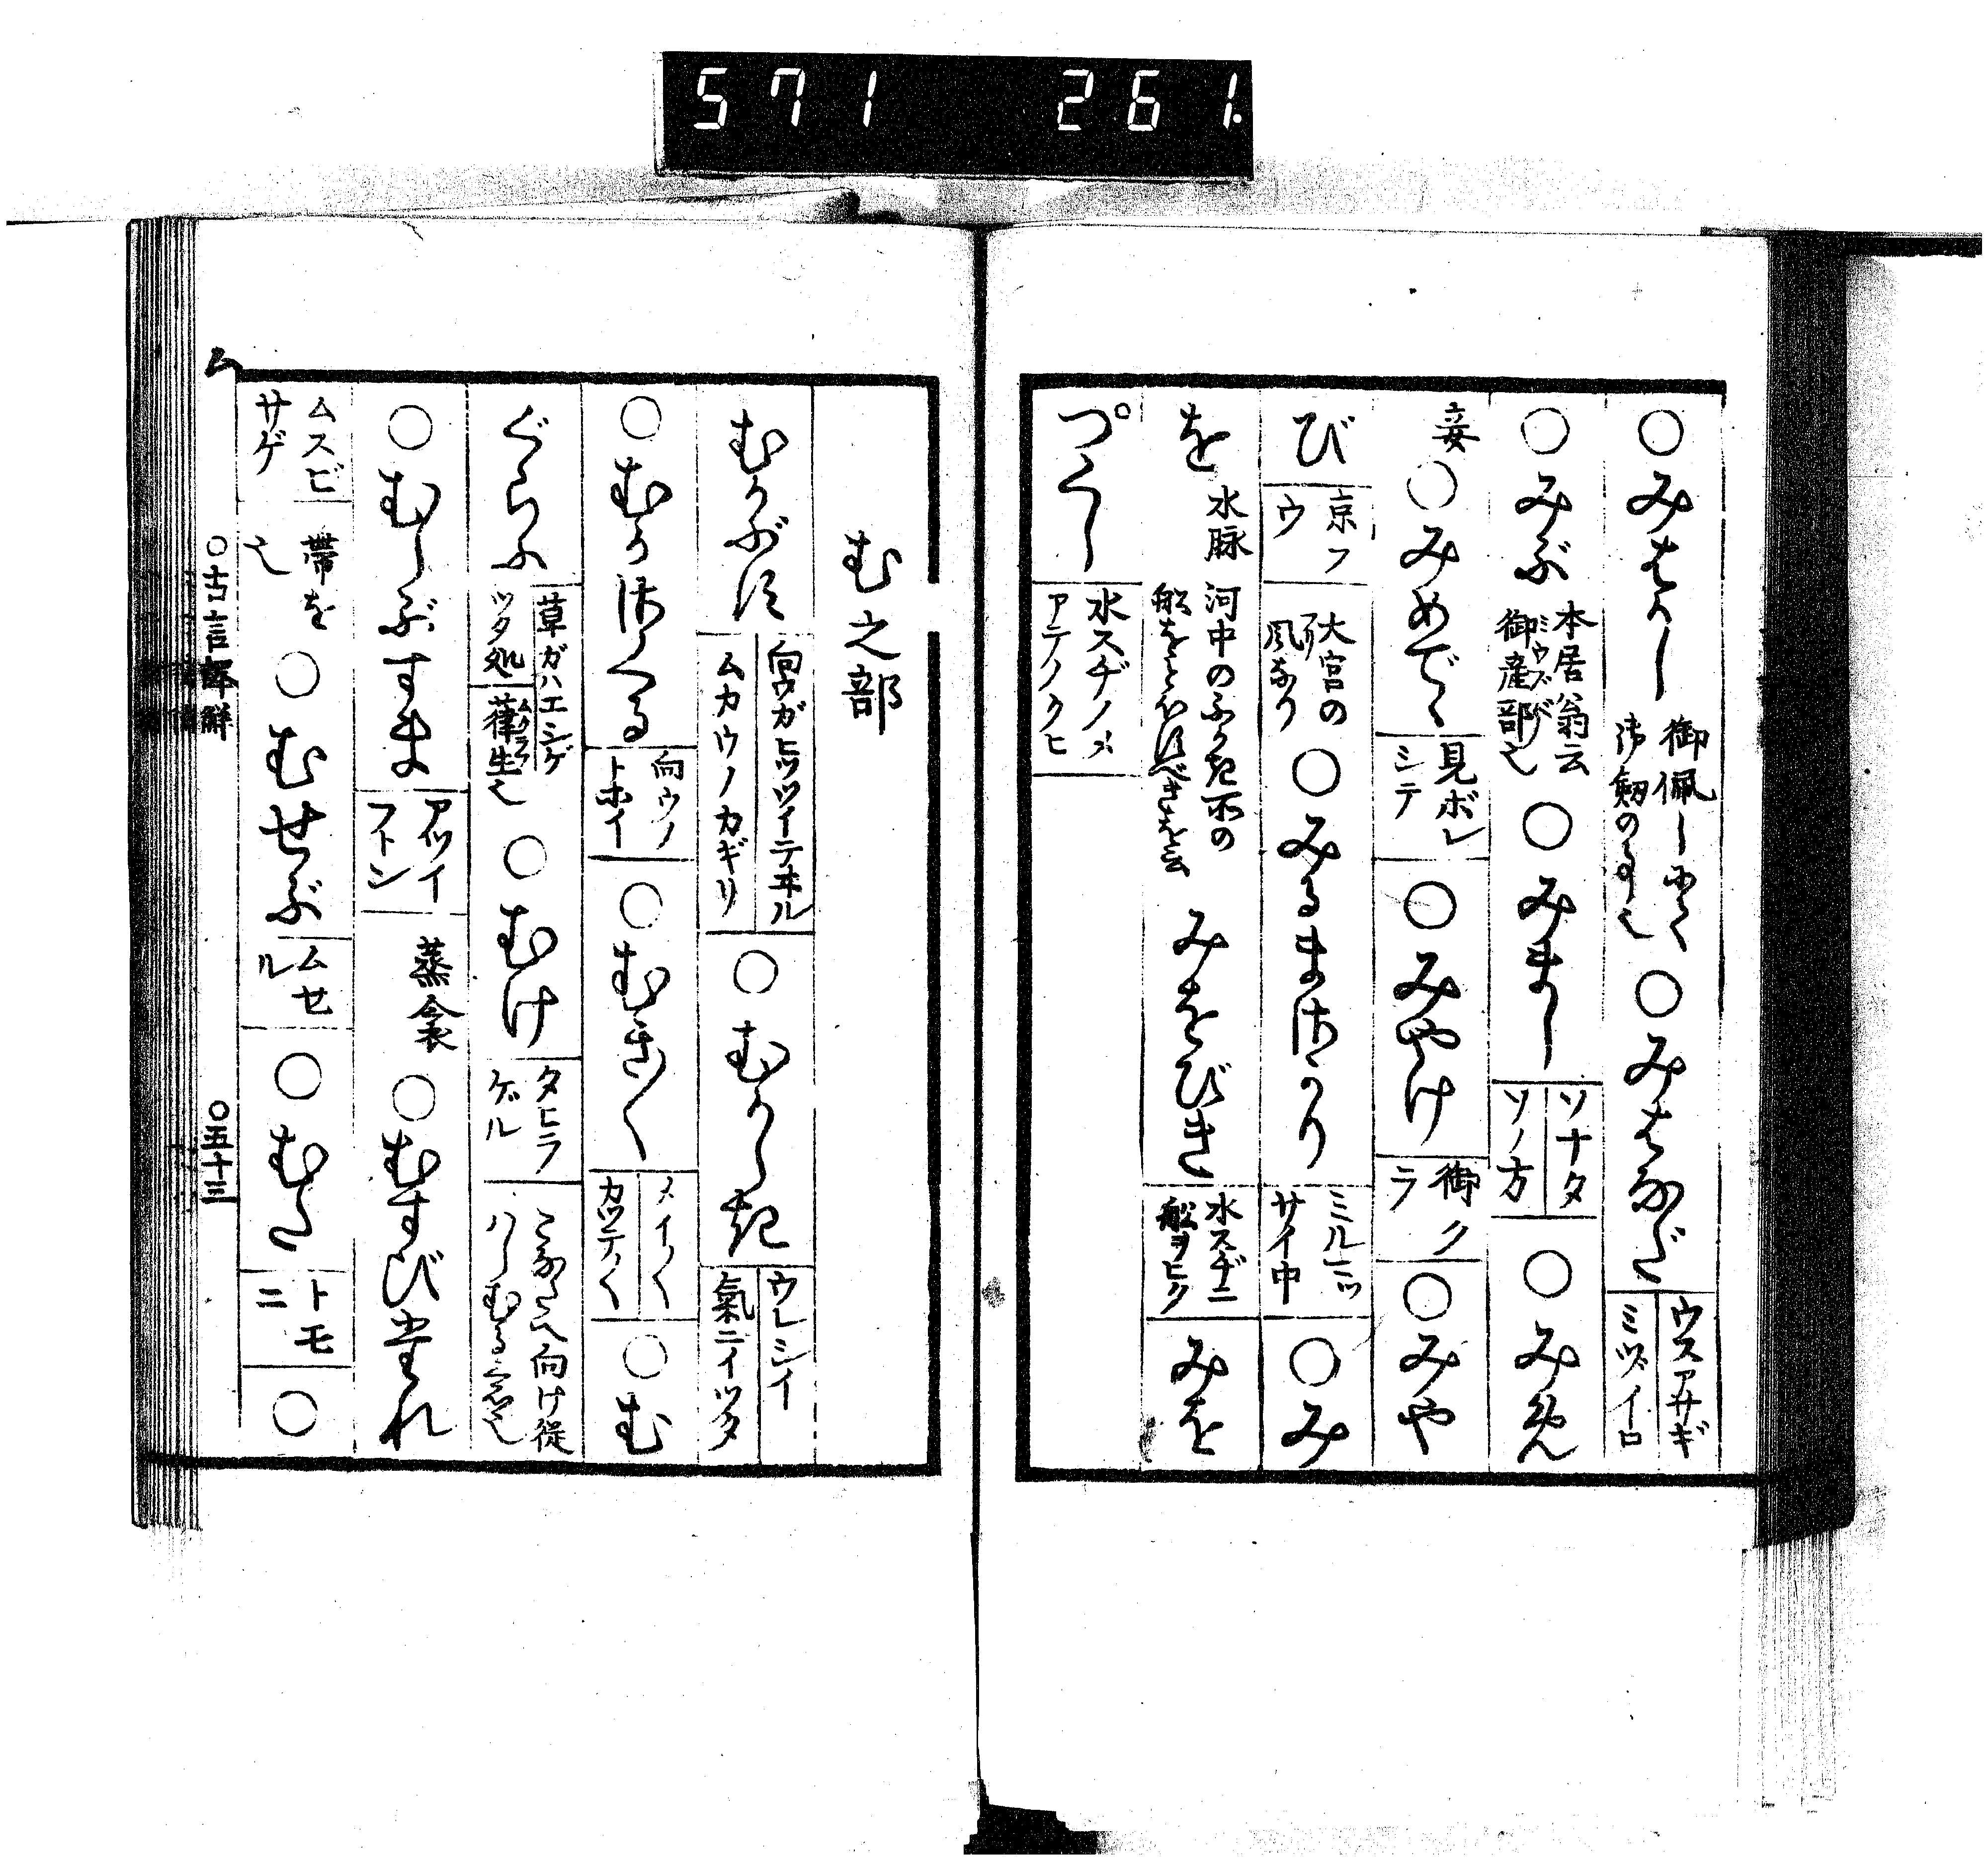 571 261.
○みはかし 御佩しにて御剱の事也 ○みはなだ ウスアサギ ミヅイロ
○みぶ 本居翁云御産部也 ミウブベ ○みまし ソナタ ソノ方 ○みめ
妾 ○みめでゝ 見ボレシテ ○みやけ 御クラ ○みや
び 京フウ 大宮の風なり ○みるまほかり ミルニツサイ中 ○み
を 水脉 河中のふかき所の みをびき 水スヂニ船ヲヒク みを
づくし 水スヂノメアテノクヒ
む之部
むかぶす 向ガヒツツイテヰル ムカウノカギリ ○むかしき ウレシイ 氣ニイツタ
○むかさくる 向ウノトホイ ○むきく メイ〱 カツテ〱 ○む
ぐらふ 草ガハエシゲツタ処 葎生也 ムクラフ ○むけ タヒラゲル こなたへ向け従はしむる意也
○むしぶすま アツイフトン 蒸衾 ○むすびたれ
ムスビサゲ 帯を也 ○むせぶ ムセル ○むた トモニ ○
ム
○古言譯解 ○五十三